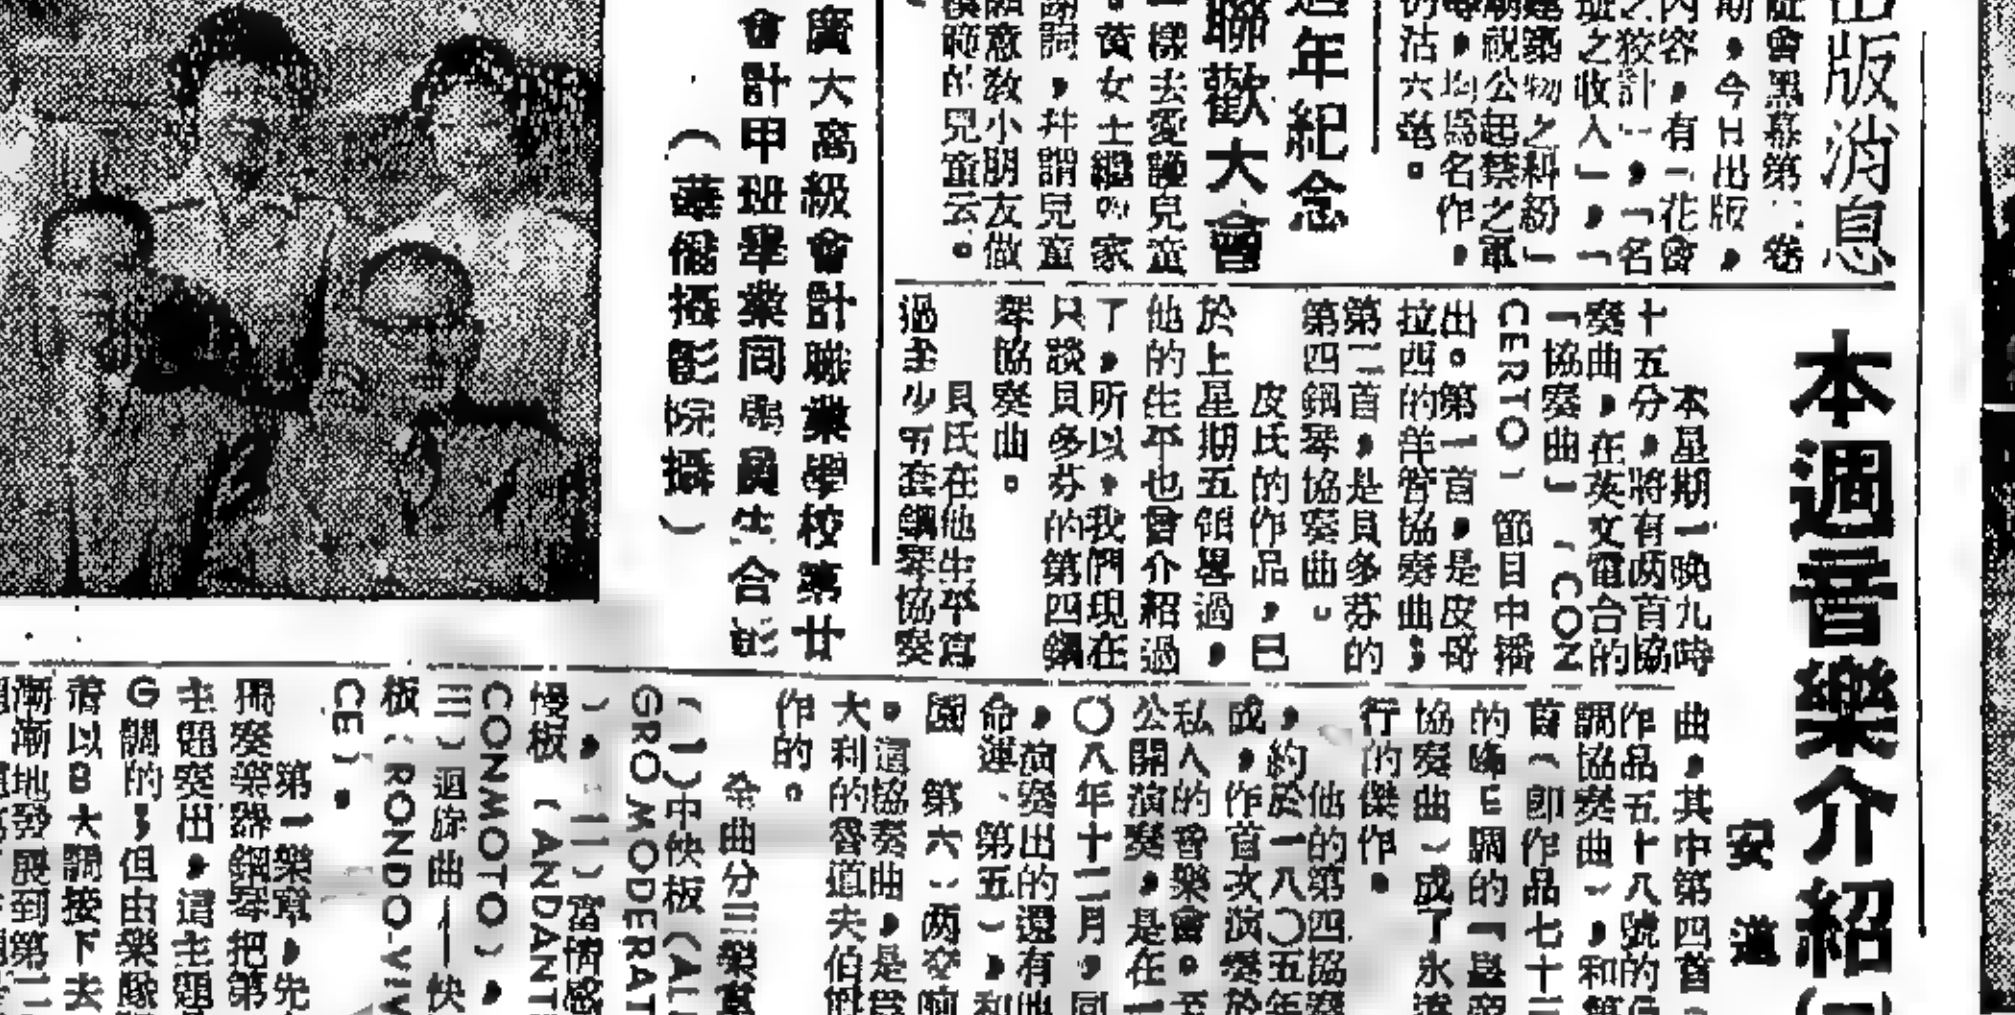 出版消息
黑幕第二卷
期，今日出版，
內容，有「花會
之狡計」，「名
號之收入」，「
建築物之糾紛」
廟祝公起禁之軍
等，均爲名作，
仍沽六毫。
週年紀念
聯歡大會
一樣去愛護兒童
。黃女士繼的家
謝詞，幷謂兒童
願意敎小朋友做
模範的兒童云。
廣大高級會計職業學校第廿
會計甲班畢業同學員生合影
（華僑攝影院攝）
本週音樂介紹
安道
本星期一晚九時
十五分，將有两首協
奏曲，在英文電台的
「協奏曲」「CON
CERTO）節目中播
出。第一首，是皮哥
拉西的羊管協奏曲；
第二首，是貝多芬的
第四鋼琴協奏曲。
皮氏的作品，已
於上星期五領畧過，
他的生平也曾介紹過
了，所以，我們現在
只談貝多芬的第四鋼
琴協奏曲。
貝氏在他生平寫
過至少有五套鋼琴協奏
曲，其中第四首（
作品五十八號的G
調協奏曲），和第
首（卽作品七十三
的降E調的「皇帝
協奏曲）成了永遠
行的傑作。
他的第四協奏
，約於一八〇五年
成，作首次演奏於
私人的音樂會。至
公開演奏，是在一
〇八年十二月，同
，演奏出的還有他
命運、第五），和
園　第六、）两交响
。這協奏曲，是爲
大利的魯道夫伯爵
作的。
全曲分三樂章
（1）中快板（ALL
GRO MODERAT
）。二）富情感
慢板（ANDANT
CONMOTO），
三）迴旋曲——快
板（RONDO-VIV
CE）。
第一樂章，先
獨奏樂器鋼琴把第
主題奏出，這主題
G調的；但由樂隊
着以B大調接下去
漸漸地發展到第二